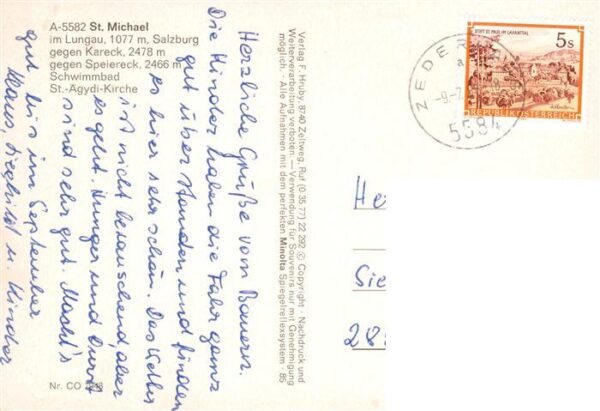 A-5582 St. Michael
im Lungau, 1077 m, Salzburg
gegen Kareck, 2478 m
gegen Speiereck, 2466 m
Schwimmbad
St.-Ägydi-Kirche
Herzliche Grüße vom Bauern.
Die Kinder haben die Fahrt ganz
gut überstanden und finden
es hier sehr schön. Das Wetter
ist nicht berauschend, aber
es geht. Hunger und Durst
sind sehr gut. Macht's
gut bis im September
Klaus, Siegfried u. Kinder
Nr. CO
Verlag F. Hruby, 8740 Zeltweg, Ruf (0 35 77) 22 292 © Copyright · Nachdruck und
Weiterverarbeitung verboten. — Verwendung für Souvenirs nur mit Genehmigung
möglich. · Alle Aufnahmen mit dem perfekten Minolta Spiegelreflexsystem · 85
STIFT ST. PAUL IM LAVANTTAL
5s
REPUBLIK ÖSTERREICH
ZEDER
a
-9.-7.
5584
He
Sie
28